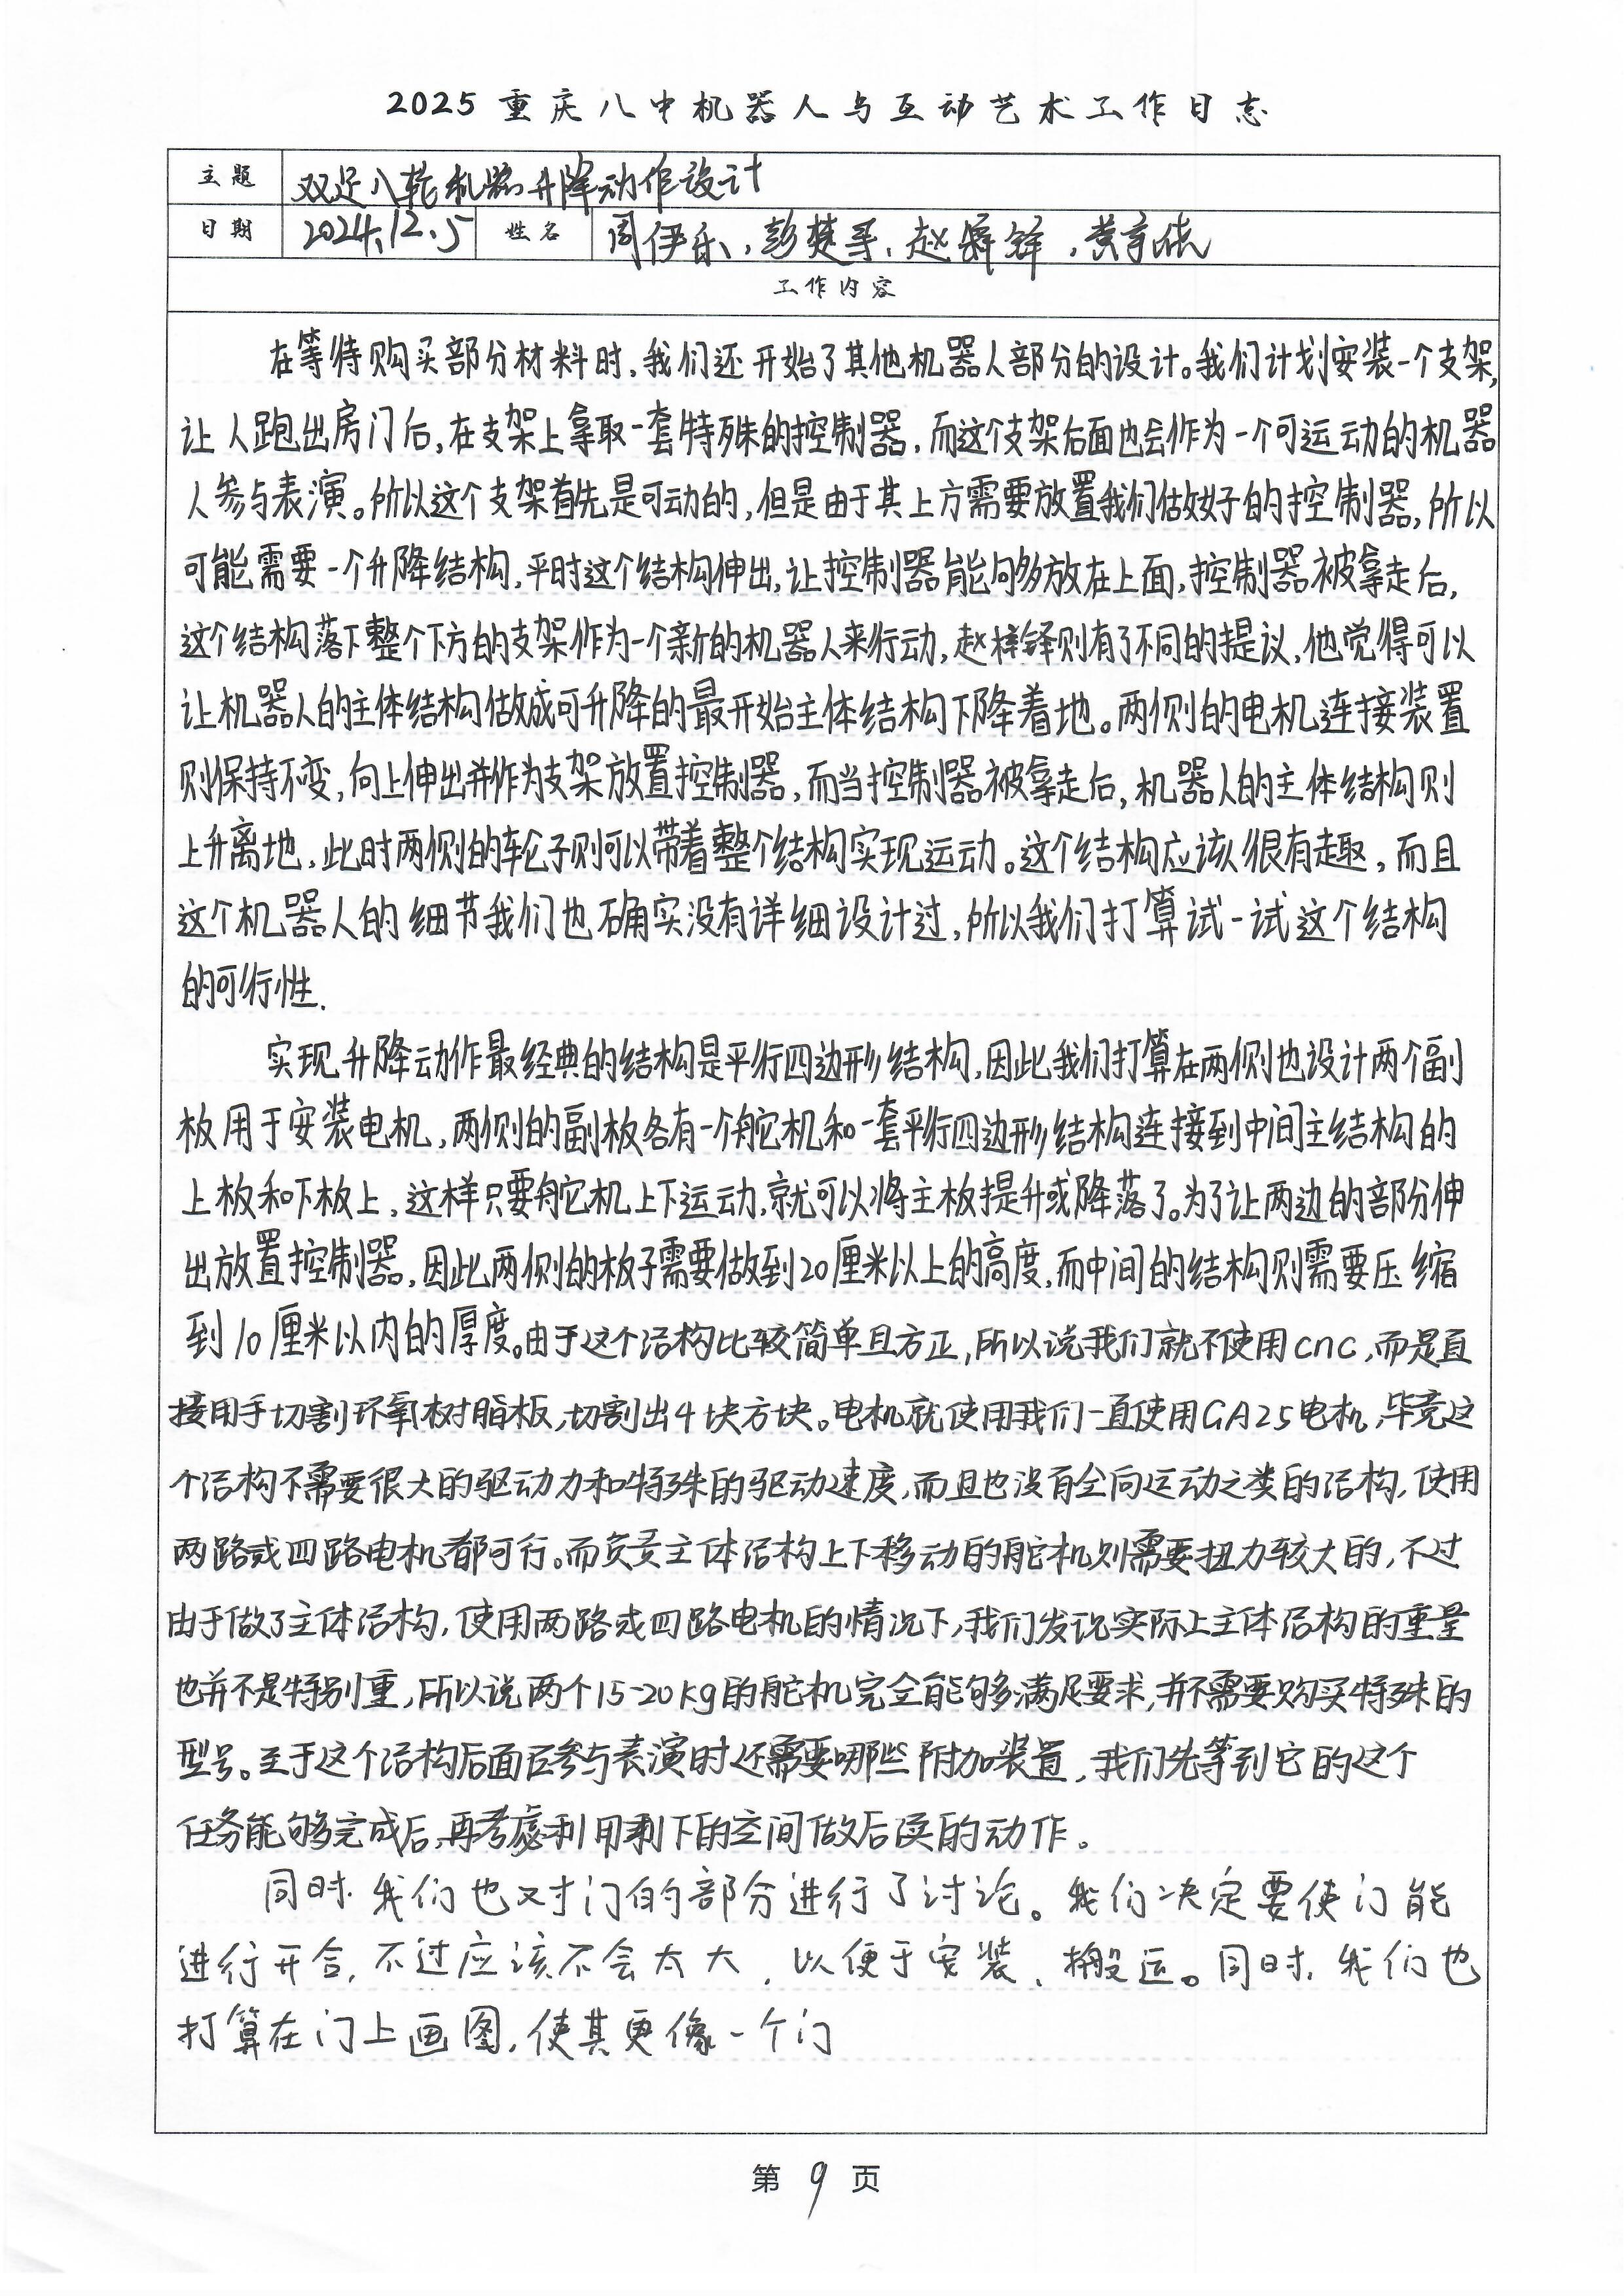 2025重庆八中机器人与互动艺术工作日志
主题 双足八轮机器升降动作设计
日期 2024.12.5 姓名 周伊乐,彭楚,赵梓铎,黄
工作内容
在等待购买部分材料时,我们还开始了其他机器人部分的设计。我们计划安装一个支架,
让人跑出房门后,在支架上拿取一套特殊的控制器,而这个支架后面也会作为一个可运动的机器
人参与表演。所以这个支架首先是可动的,但是由于其上方需要放置我们做好的控制器,所以
可能需要一个升降结构,平时这个结构伸出,让控制器能够放在上面,控制器被拿走后,
这个结构落下整个下方的支架作为一个新的机器人来行动,赵梓铎则有了不同的提议,他觉得可以
让机器人的主体结构做成可升降的最开始主体结构下降着地。两侧的电机连接装置
则保持不变,向上伸出并作为支架放置控制器,而当控制器被拿走后,机器人的主体结构则
上升离地,此时两侧的轮子则可以带着整个结构实现运动。这个结构应该很有趣,而且
这个机器人的细节我们也确实没有详细设计过,所以我们打算试一试这个结构
的可行性.
实现升降动作最经典的结构是平行四边形结构,因此我们打算在两侧也设计两个副
板用于安装电机,两侧的副板各有一个舵机和一套平行四边形结构连接到中间主结构的
上板和下板上,这样只要舵机上下运动,就可以将主板提升或降落了。为了让两边的部分伸
出放置控制器,因此两侧的板子需要做到20厘米以上的高度,而中间的结构则需要压缩
到10厘米以内的厚度。由于这个结构比较简单且方正,所以说我们就不使用cnc,而是直
接用手切割环氧树脂板,切割出4块方块。电机就使用我们一直使用GA25电机,毕竟这
个结构不需要很大的驱动力和特殊的驱动速度,而且也没有全向运动之类的结构,使用
两路或四路电机都可行。而负责主体结构上下移动的舵机则需要扭力较大的,不过
由于做了主体结构,使用两路或四路电机的情况下,我们发现实际上主体结构的重量
也并不是特别重,所以说两个15-20kg的舵机完全能够满足要求,并不需要购买特殊的
型号。至于这个结构后面在参与表演时还需要哪些附加装置,我们先等到它的这个
任务能够完成后,再考虑利用剩下的空间做后续的动作。
同时,我们也对门的部分进行了讨论。我们决定要使门能
进行开合,不过应该不会太大,以便于安装、搬运。同时,我们也
打算在门上画图,使其更像一个门
第 9 页